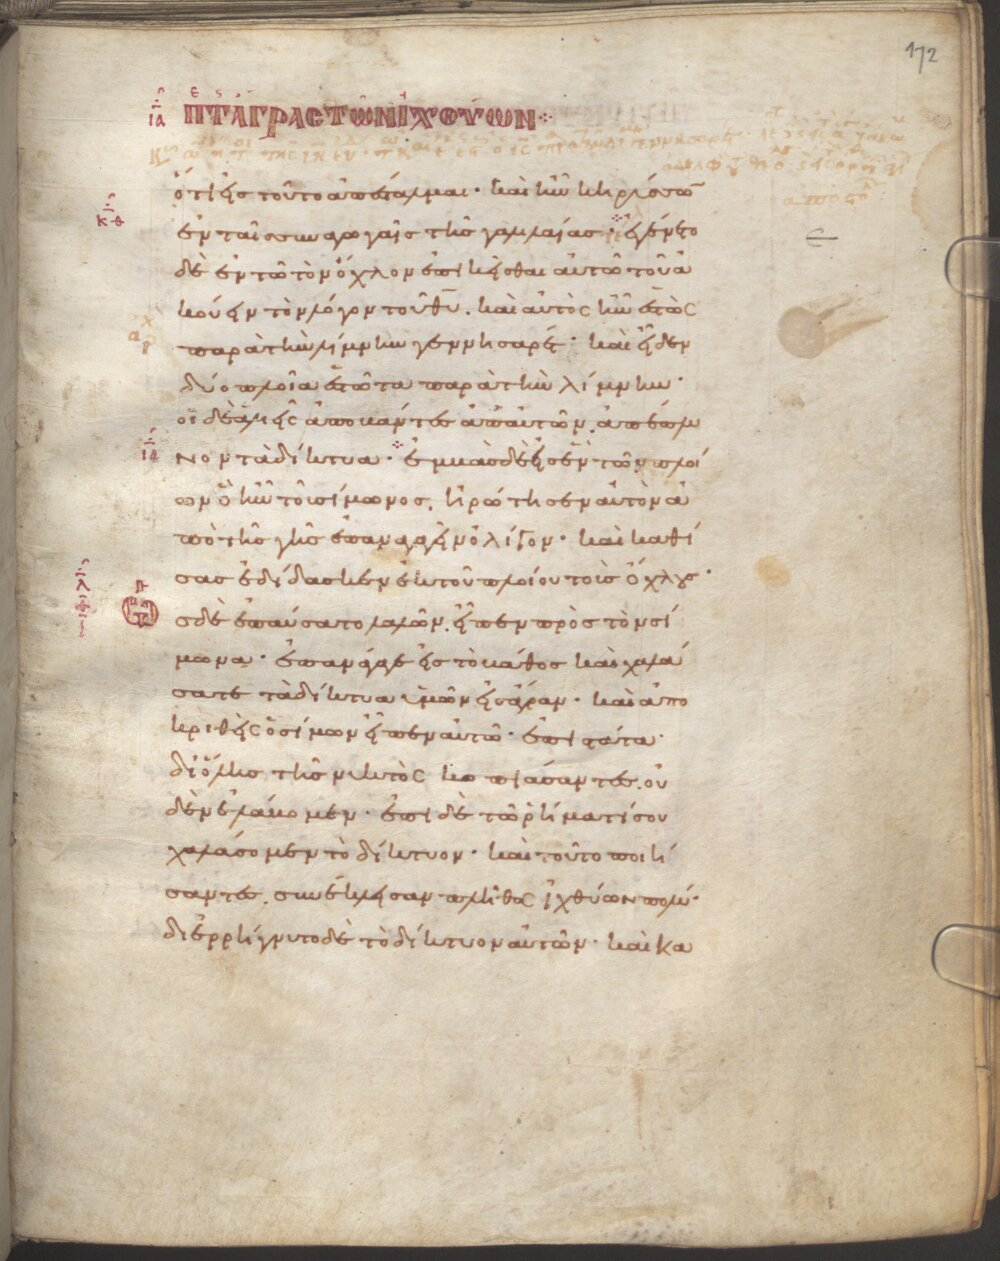 172
ΙΑ ΠΤ ΑΓΡΑΣ ΤΩΝ ΙΧΘΥΩΝ
ὅτι εἰς τοῦτο ἀπέσταλμαι· καὶ ἦν κηρύσσω̅
ἐν ταῖς συναγωγαῖς τῆς γαλιλαίας· ἐγένετο
δὲ ἐν τῶ τὸν ὄχλον ἐπικεῖσθαι αὐτῶ τοῦ ἀ
κούειν τὸν λόγον τοῦ θ̅υ̅. καὶ αὐτὸς ἦν ἑστὼς
παρὰ τὴν λίμνην γεννησαρέτ· καὶ εἶδεν
δύο πλοῖα ἑστῶτα παρὰ τὴν λίμνην·
οἱ δὲ ἁλιεῖς ἀποβάντες ἀπ' αὐτῶν, ἀπέπλυ
νον τὰ δίκτυα· ἐμβὰς δὲ εἰς ἓν τῶν πλοί
ων ὃ ἦν τοῦ σίμωνος, ἠρώτησεν αὐτὸν ἀ
πὸ τῆς γῆς ἐπαναγαγεῖν ὀλίγον· καὶ καθί
σας ἐδίδασκεν ἐκ τοῦ πλοίου τοὺς ὄχλους·
ς δὲ ἐπαύσατο λαλῶν, εἶπεν πρὸς τὸν σί
μωνα· ἐπανάγαγε εἰς τὸ βάθος καὶ χαλά
σατε τὰ δίκτυα ὑμῶν εἰς ἄγραν· καὶ ἀπο
κριθεὶς ὁ σίμων εἶπεν αὐτῶ· ἐπιστάτα·
δι' ὅλης τῆς νυκτὸς κοπιάσαντες, οὐ
δὲν ἐλάβομεν· ἐπὶ δὲ τῶ ῥήματί σου
χαλάσομεν τὸ δίκτυον· καὶ τοῦτο ποιή
σαντες, συνέκλεισαν πλῆθος ἰχθύων πολύ·
διερρήγνυτο δὲ τὸ δίκτυον αὐτῶν· καὶ κα